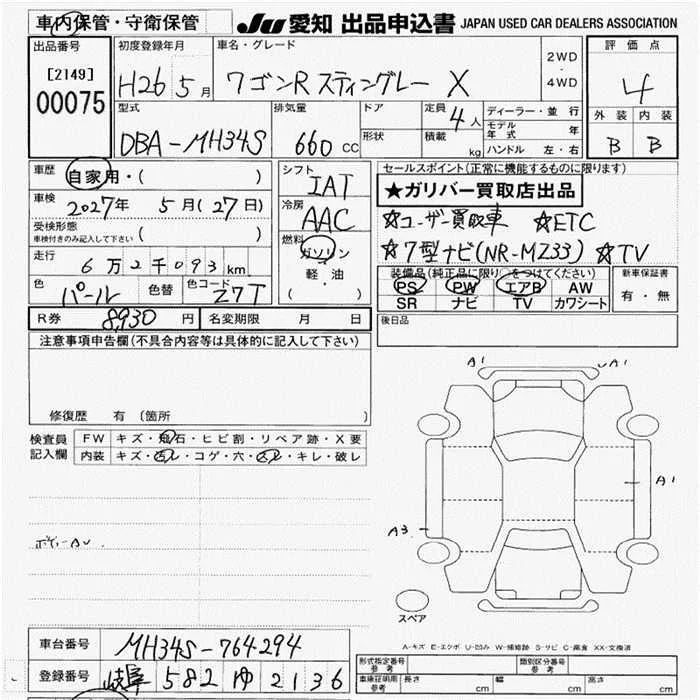 車内保管・守衛保管
JU 愛知 出品申込書 JAPAN USED CAR DEALERS ASSOCIATION
出品番号 初度登録年月 車名・グレード 評価点
[2149] H26 5月 ワゴンR スティングレー X 2WD・4WD 4
00075 型式 排気量 ドア 定員 4人 ディーラー・並行 外装 内装
DBA-MH34S 660cc 形状 積載 kg モデル年式 年 B B
ハンドル 左・右
車歴 自家用・( ) シフト IAT セールスポイント(正常に機能するものに限ります)
車検 2027年 5月(27日) 冷房 AAC ★ガリバー買取店出品
受検形態 車検付きのみ記入して下さい ( ) 燃料 ☆ユーザー買取車 ☆ETC
走行 6万2千093km ガソリン ☆7型ナビ(NR-MZ33) ☆TV
軽・油 装備品(純正品に限り○をつけてください) 新車保証書
色 パール 色替 色コード Z7T ( ) PS PW エアB AW 有・無
SR ナビ TV カワシート
R券 8930円 名変期限 月 日 後日品
注意事項申告欄(不具合内容等は具体的に記入して下さい)
修復歴 有(箇所 )
検査員記入欄 FW キズ・飛石・ヒビ割・リペア跡・X要
内装 キズ・汚レ・コゲ・穴・スレ・キレ・破レ
A1 A1
A1
A3
ボディーAU
スペア
A-キズ E-エクボ U-凹み W-補修跡 S-サビ C-腐食 XX-交換済
車台番号 MH34S-764294
登録番号 岐阜 582 ゆ 2136
形式指定番号 参考 類別区分番号 参考
車庫証明用 参考 長さ cm 幅 cm 高さ cm